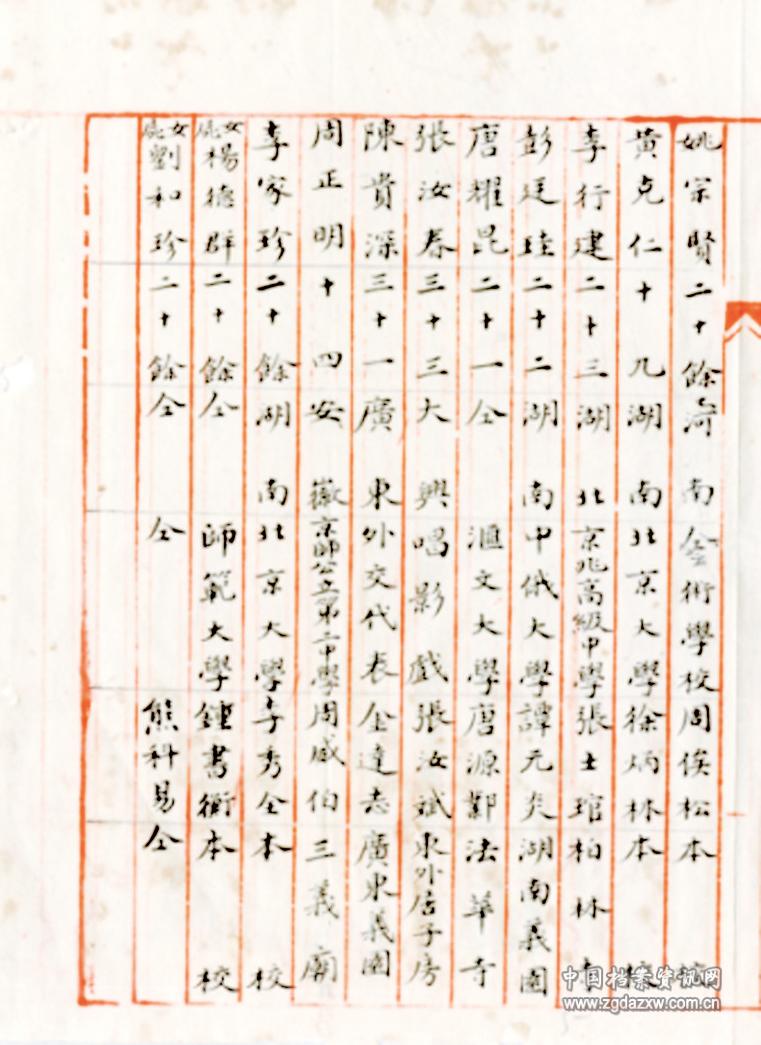 姚宗賢二十餘河南 術學校周俟松本
黄克仁十九湖南北京大學徐炳林本校
李行建二十三湖北京兆高級中學張士琯柏林寺
彭廷珪二十二湖南中俄大學譚元炎湖南義園
唐耀昆二十一仝滙文大學唐源鄴法華寺
張汝春三十三大興唱影戲張汝斌東外居子房
陳貴深三十一廣東外交代表仝達志廣東義園
周正明十四安徽京師公立第二中學周咸伯三義廟
李家珍二十餘湖南北京大學李秀仝本校
女屍楊德群二十餘仝師範大學鍾書衡本校
女屍劉和珍二十餘仝仝熊科易仝
中国档案资讯网
www.zgdazxw.com.cn